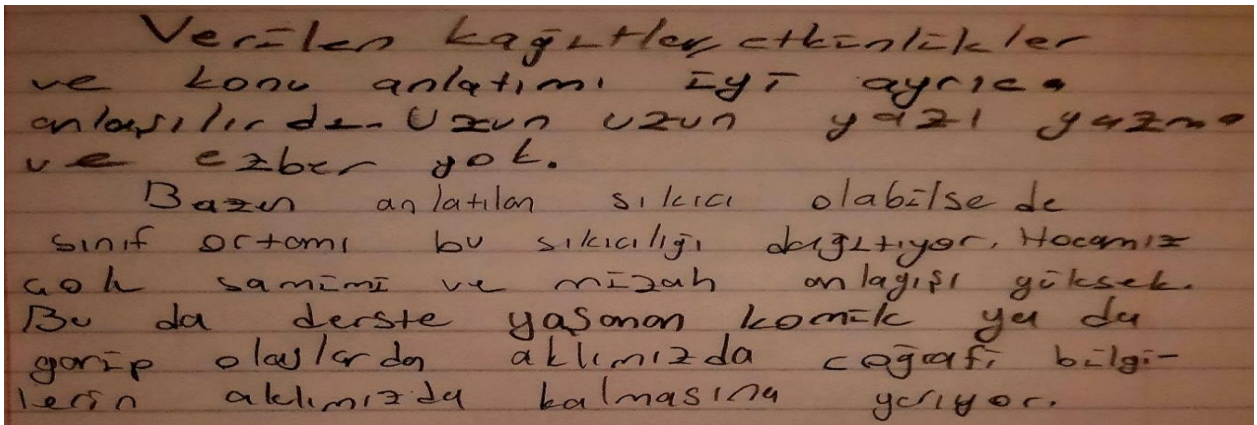 Verilen kağıtlar, etkinlikler
ve konu anlatımı iyi ayrıca
anlaşılır da. Uzun uzun yazı yazma
ve ezber yok.
Bazen anlatılan sıkıcı olabilse de
sınıf ortamı bu sıkıcılığı dağıtıyor. Hocamız
çok samimi ve mizah anlayışı yüksek.
Bu da derste yaşanan komik ya da
garip olaylardan aklımızda coğrafi bilgi-
lerin aklımızda kalmasına yarıyor.